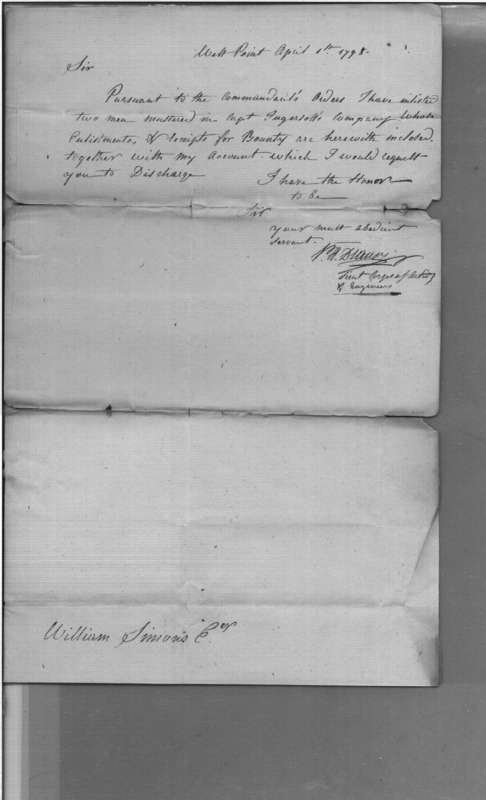 West Point April 1st 1798.
Sir
Pursuant to the Commandant's Orders I have inlisted
two men mustered in Capt Ingersoll's Company whose
Enlistments, & receipts for Bounty are herewith inclosed.
together with my Account which I would request
you to Discharge
I have the Honor
to be
Sir
your most obedient
servant.
Lieut Corps of Artily
& Engineers
William Simons Esqr